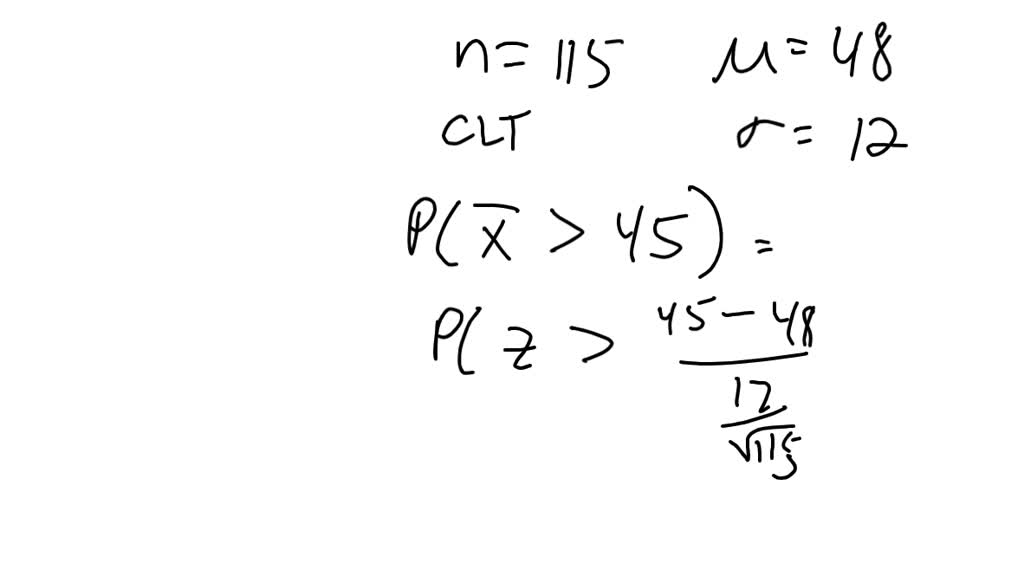 n = 115 μ = 48
CLT σ = 12
P( x̄ > 45 ) =
P( z > 45 - 48
12
√115